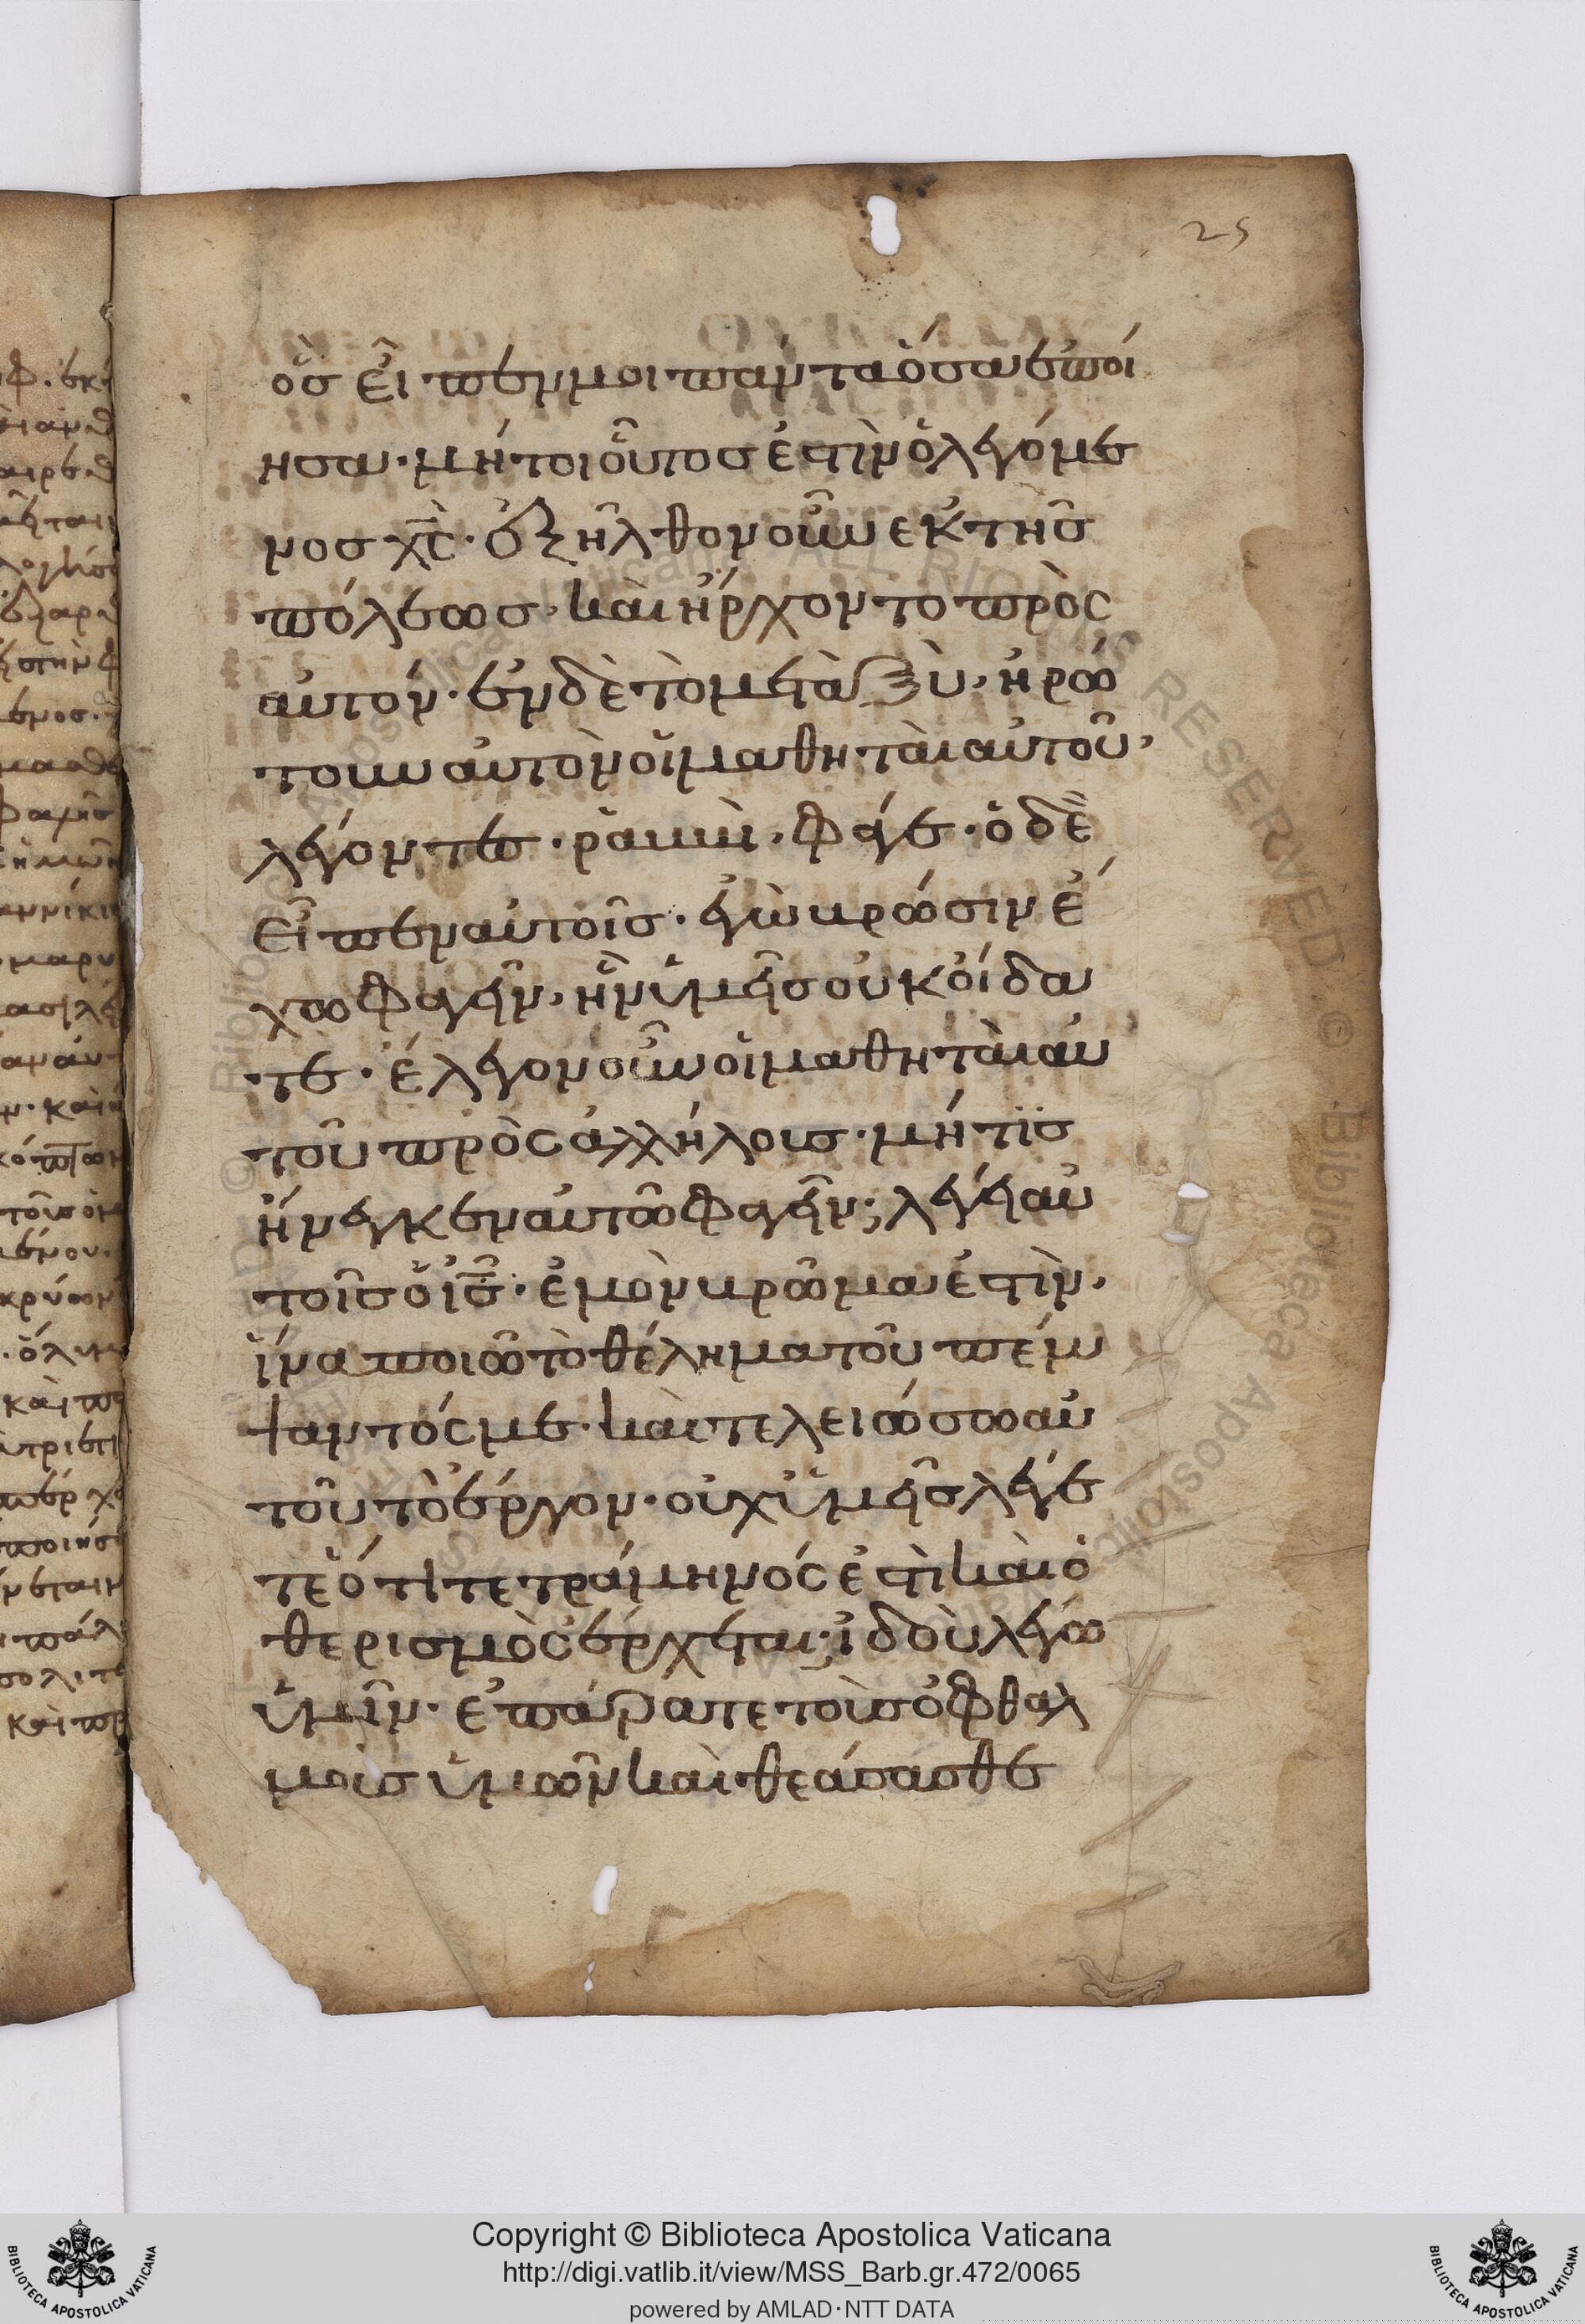 25
ὃσ εἶπεν μοι πάντα ὅσα ἐποί
ησα· μήτοι οὗτοσ ἐστὶν ὁ λεγόμε
νοσ χ̅ς̅· ἐξῆλθον οὖν εκ τῆσ
πόλεωσ, καὶ ἤρχοντο πρὸς
αὐτόν· ἐν δὲ τὸ μεταξὺ, ἠρώ
τουν αὐτὸν οἱ μαθηταὶ αὐτοῦ,
λέγοντεσ· ῥαββὶ, φάγε· ὁ δὲ
εἶπεν αὐτοῖσ· ἐγὼ βρώσιν ἔ
χω φαγεῖν, ἣν ὑμεῖσ οὐκ οἴδα
τε· ἔλεγον οὖν οἱ μαθηταὶ αὐ
τοῦ πρὸς ἀλλήλουσ· μήτϊσ
ἤνεγκεν αὐτῶ φαγεῖν; λέγει αὐ
τοῖσ ὁ ι̅σ̅· ἐμὸν βρῶμα ἐστὶν,
ἵνα ποιῶ τὸ θέλημα τοῦ πέμ
ψαντός με· καὶ τελειώσω αὐ
τοῦ τὸ ἔργον· οὐχ ὑμεῖσ λέγε
τε ὅτι τετράμηνός ἐστὶ καὶ ὁ
θερισμὸς ἔρχεται; ἰδοὺ λέγω
ὑμῖν· ἐπάρατε τοὺσ ὀφθαλ
μοὺσ ὑμῶν καὶ θεάσασθε
Copyright © Biblioteca Apostolica Vaticana
http://digi.vatlib.it/view/MSS_Barb.gr.472/0065
powered by AMLAD·NTT DATA
BIBLIOTECA APOSTOLICA VATICANA
BIBLIOTECA APOSTOLICA VATICANA